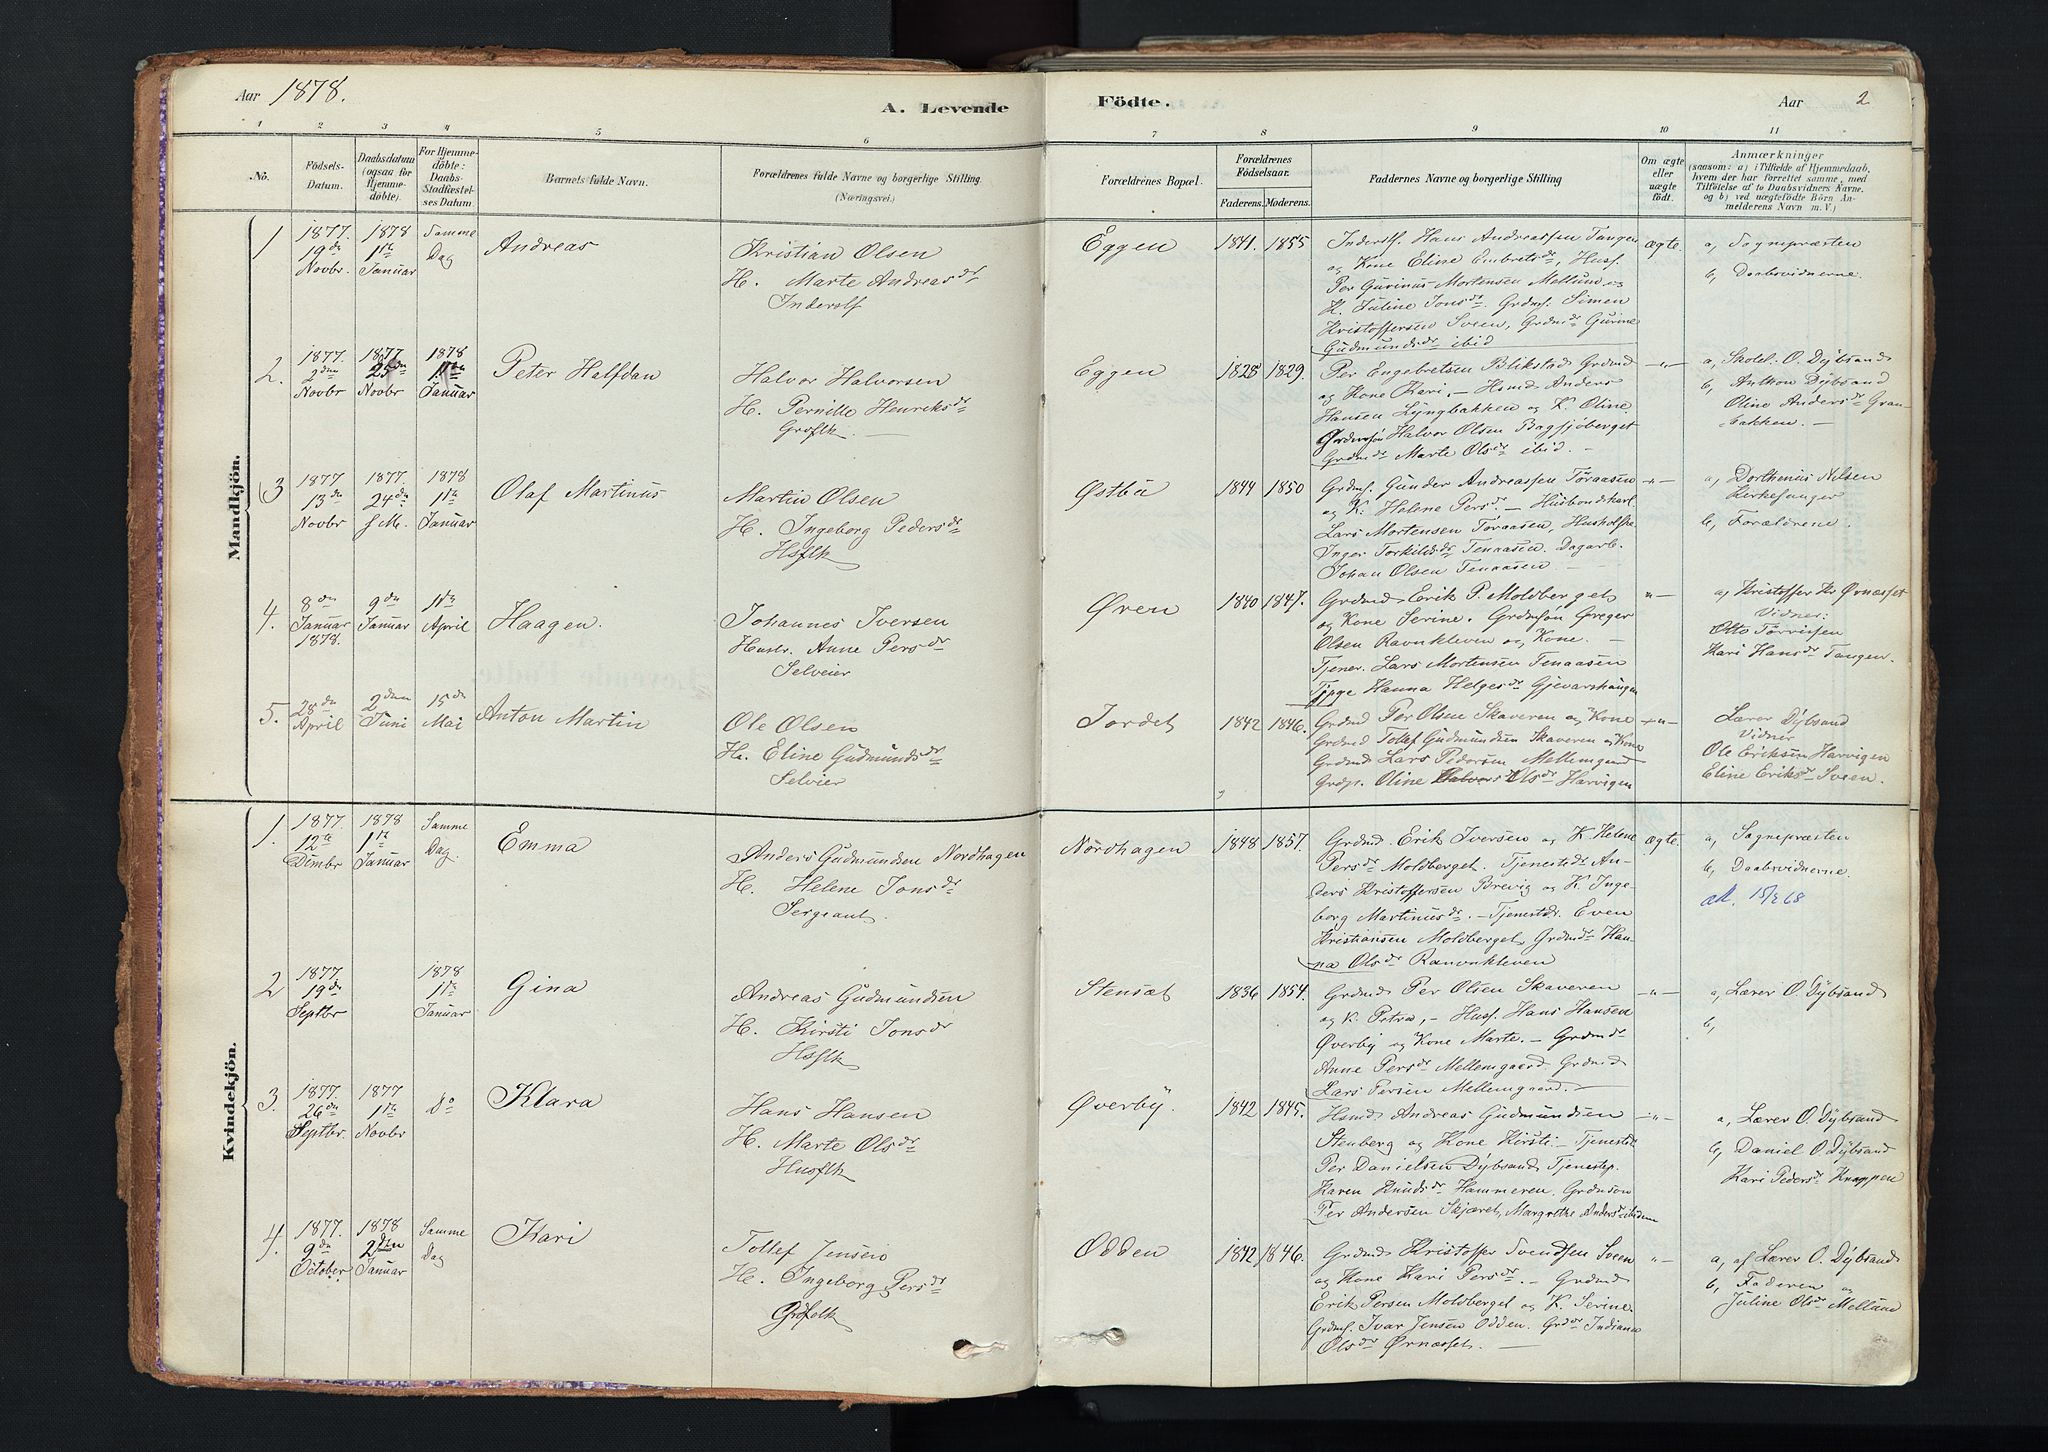 Aar 1878.
A. Levende Födte.
Aar 2
1 2 3 4 5 6 7 8 9 10 11
No.
Födsels-
Datum.
Daabsdatum
(ogsaa for
Hjemme-
döbte).
For Hjemme-
döbte:
Daabs-
Stadfæstel-
ses Datum.
Barnets fulde Navn.
Forældrenes fulde Navne og borgerlige Stilling.
(Næringsvei.)
Forældrenes Bopæl.
Forældrenes
Födselsaar.
Faderens. Moderens.
Faddernes Navne og borgerlige Stilling
Om ægte
eller
uægte
født.
Anmærkninger
(saasom: a) i Tilfælde af Hjemmedaab,
hvem der har forrettet samme, med
Tilföielse af to Daabsvidners Navne,
og b) ved uægtefödte Börn An-
melderens Navn m. V.)
Mandkjön.
1
1877
19de
Novbr.
1878
1ste
Januar
Samme
Dag
Andreas
Kristian Olsen
H. Marte Andreasdr
Inderstf
Eggen
1841. 1855
Inderstf. Hans Andreassen Tangen
og Kone Eline Embretsdr, Husf.
Per Gurinus Mortensen Mellum og
K. Juline Jonsdr. Grdmf. Simen
Kristoffersen Sveen, Grdmdr Gurine
Gudmundsdr ibid
ægte.
a, Sognepræsten
b, Daabsvidnerne.
2.
1877.
2den
Novbr
1877
25de
Novbr
1878
1ste
Januar
Peter Halfdan
Halvor Halvorsen
H. Pernille Henriksdr
Grdflk. —
Eggen
1825 1829.
Per Engebretsen Blikstad Grdmd
og Kone Kari. — Hsmd. Anders
Hansen Lyngbakken og K. Oline.
Grdmssøn Halvor Olsen Bagsjöberget
Grdmdr Marte Olsdr ibid. —
—"—
a, Skolel. O. Dybsand
b, Anthon Dybsand
Oline Andersdr Gran-
bakken. —
3
1877
13de
Novbr
1877.
24de
s. M.
1878
1ste
Januar
Olaf Martinus
Martin Olsen
H. Ingeborg Pedersdr
Hsflk
Østbü
1844 1850
Grdmf. Günder Andreassen Töraasen
og K. Helene Persdr. — Husbondskarl
Lars Mortensen Toraasen, Husholdske
Inger Torkildsdr Tenaasen. Dagarb.
Johan Olsen Tenaasen. —
—"—
a, Dorthenus Nilsen
Kirkesanger
b, Forældrene.
4.
8de
Januar
1878.
9de
Januar
11te
April
Haagen.
Johannes Iversen
Hustr. Anne Persdr
Selveier
Øren
1840 1847.
Grdmd Erik P. Moldberget
og Kone Serine. Grdmssøn Greger
Olsen Ravnkleven og Kone. —
Tjener. Lars Mortensen Tenaasen
Tjpge Hanna Helgesdr Gjevarshaugen
"—
a, Kristoffer Kr Ørnæsset
Vidner:
Otto Törrissen
Kari Hansdr Tangen.
5.
28de
April
2den
Juni
15de
Mai
Anton Martin
Ole Olsen
H. Eline Gudmundsdr
Selvier
Jordet
1842 1846.
Grdmd Per Olsen Skaveren og Kone
Grdmd Tollef Gudmundsen Skaveren og Kone
Grdmd Lars Pedersen Mellemgaard
Grdp. Oline Olsdr Harvigen
—"—
Lærer Dybsand
Vidner
Ole Eriksen Harvigen
Eline Eriksdr Sveen.
Kvindekjön.
1.
1877.
12te
Dcmbr
1878
1ste
Januar
Samme
Dag.
Emma
Anders Gudmundsen Nordhagen
H. Helene Jonsdr
Sergeant.
Nordhagen
1848 1857.
Grdmd Erik Iversen og K. Helene
Persdr Moldberget. Tjenestdr. An-
ders Kristoffersen Brevig og K. Inge-
borg Martinusdr. — Tjenestdr. Even
Kristiansen Moldberget, Grdmdr Han-
na Olsdr Ravnkleven
ægte.
a, Sognepræsten
b, Daabsvidnerne.
15/2 68
2
1877.
19de
Septbr
1878
1ste
Januar
Gina
Andreas Gudmundsen
H. Kirsti Jonsdr
Hsflk
Stensæt
1836 1854.
Grdmd Per Olsen Skaveren
og K. Petra, — Husf. Hans Hansen
Øverby og Kone Marte. — Grdmdr
Anne Persdr Mellemgaard Grdmd
Lars Persen Mellemgaard. —
—"—
a, Lærer O. Dybsand
b,
3.
1877.
26de
Septbr.
1877
1ste
Novbr
Do
Klara
Hans Hansen
H. Marte Olsdr
Husflk
Øverby.
1842 1845.
Hsmd Andreas Gudmundsen
Stenberg og Kone Kirsti. — Tjenestdr.
Per Danielsen Dybsand Tjenestep.
Karen Knudsdr Hammeren. Grdmssøn
Per Andersen Skjæret, Margrethe Andersdr ibidem
—"—
a, Lærer O. Dybsand
b, Daniel O. Dybsand
Kari Pedersdr Knappen
4.
1877.
9de
October
1878
2den
Januar
Samme
Dag
Kari
Tollef Jensen
H. Ingeborg Persdr
Grdfolk
Odden
1842 1846.
Grdmd Kristoffer Svendsen Sveen
og Kone Kari Persdr. — Grdmd
Erik Persen Moldberget og K. Serine
Grdmf. Ivar Jensen Odden. Grdmdr Indiana
Olsdr Ørnæsset. —
"—
a, af Lærer O. Dybsand
b, Faderen og
Juline Olsdr Mellund